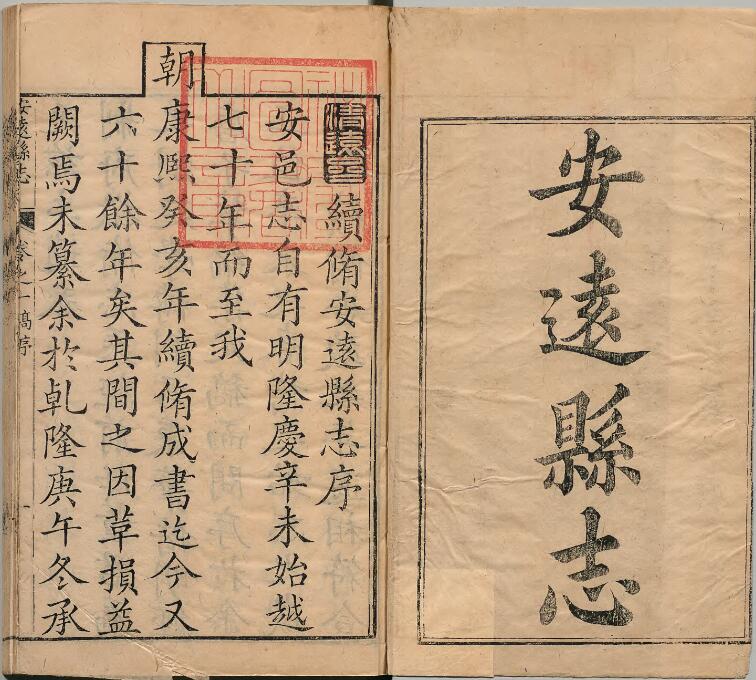 安遠縣志
續脩安遠縣志序
安邑志自有明隆慶辛未始越
七十年而至我
朝康熙癸亥年續脩成書迄今又
六十餘年矣其間之因草損益
闕焉未纂余於乹隆庚午冬承
安遠縣志
序